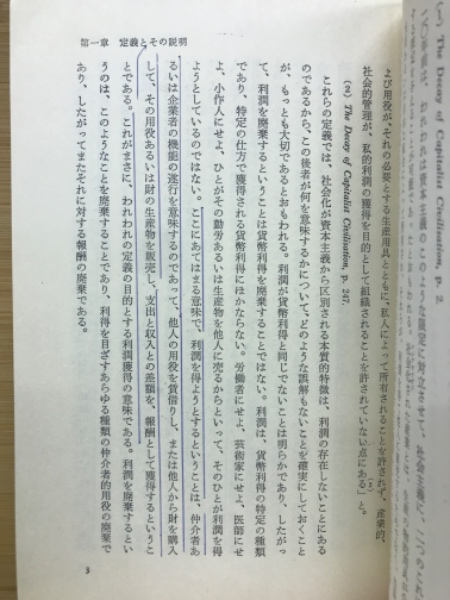 The Decay of Capitalist Civilisation, p. 2
第一章　定義とその説明
よび用役が、それの必要とする生産用具とともに、私人によって所有されることを許さず、産業的、
社会的管理が、私的利潤の獲得を目的として組織されることを許されていない点にある(2)」と。
(2) The Decay of Capitalist Civilisation, p. 247.
これらの定義では、社会化が資本主義から区別される本質的特徴は、利潤の存在しないことにある
のであるから、この後者が何を意味するかについて、どのような誤解もないことを確実にしておくこと
が、もっとも大切であるとおもわれる。利潤が貨幣利得と同じでないことは明らかであり、したがっ
て、利潤を廃棄するということは貨幣利得を廃棄することではない。利潤は、貨幣利得の特定の種類
であり、特定の仕方で獲得される貨幣利得にほかならない。労働者にせよ、芸術家にせよ、医師にせ
よ、小作人にせよ、ひとがその勤労あるいは生産物を他人に売るからといって、そのひとが利潤を得
ようとしているのではない。ここにあてはまる意味で、利潤を得ようとするということは、仲介者あ
るいは企業者の機能の遂行を意味するのであって、他人の用役を賃借りし、または他人から財を購入
して、その用役あるいは財の生産物を販売し、支出と収入との差額を、報酬として獲得するというこ
とである。これがまさに、われわれの定義の目的とする利潤獲得の意味である。利潤を廃棄するとい
うのは、このようなことを廃棄することであり、利得を目ざすあらゆる種類の仲介者的用役の廃棄で
あり、したがってまたそれに対する報酬の廃棄である。
3